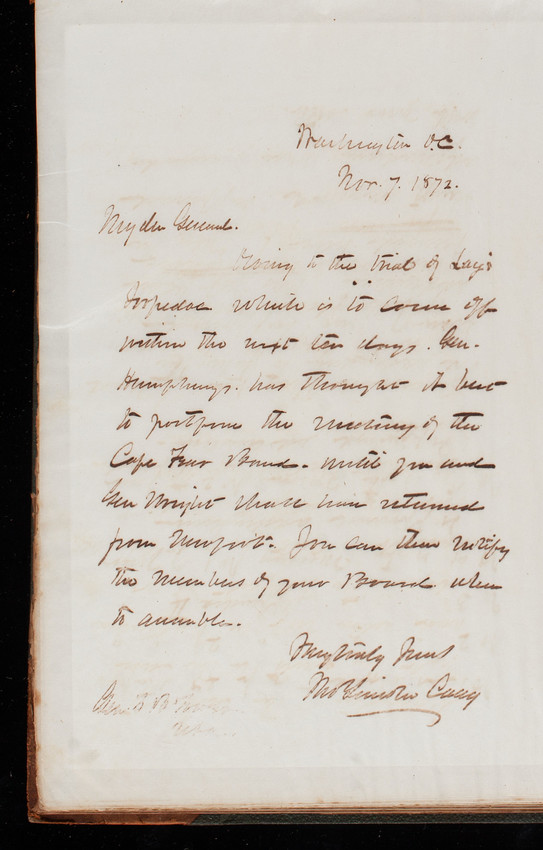 Washington D.C.
Nov. 7. 1872.
My dear General.
Owing to the trial of Lay's
Torpedoe which is to come off
within the next ten days. Gen.
Humphreys. has thought it best
to postpone the meeting of the
Cape Fear Board. until you and
Gen Wright shall have returned
from Newport. You can then notify
the members of your Board when
to assemble.
Very truly Yours
Thos Lincoln Casey
Genl